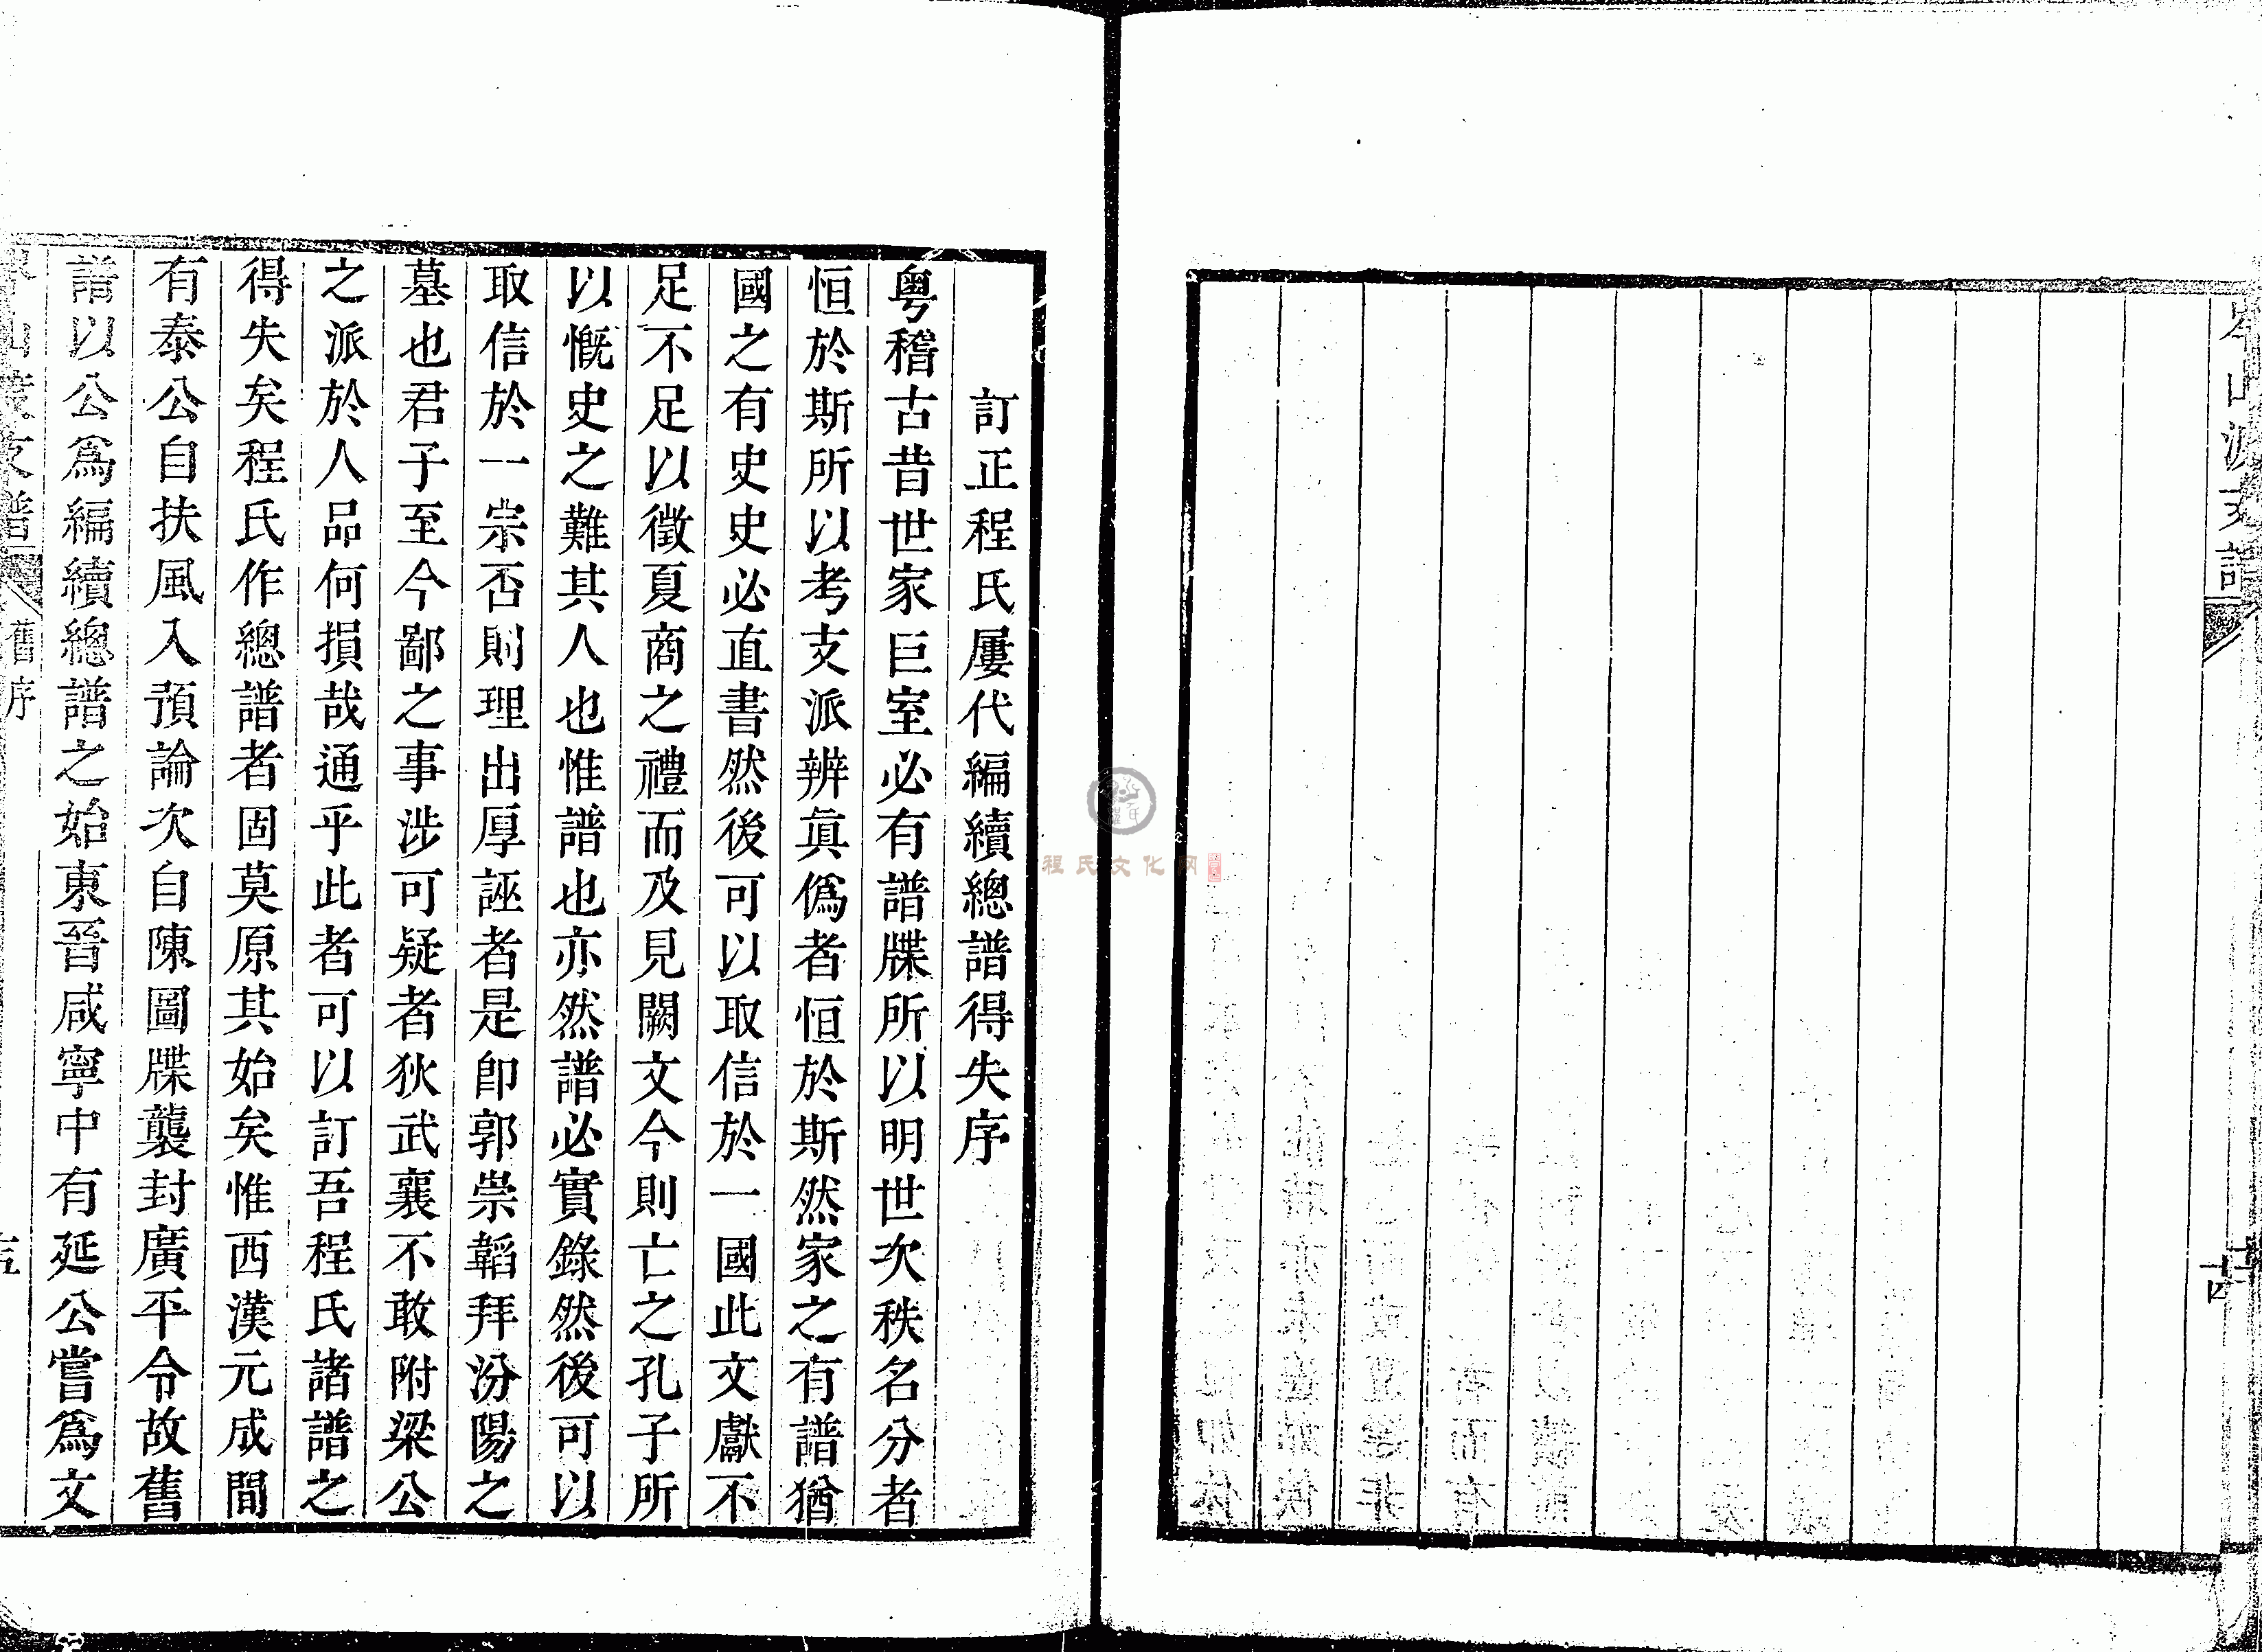 山派支譜
十四
訂正程氏屢代編續總譜得失序
粤稽古昔世家巨室必有譜牒所以明世次秩名分者
恒於斯所以考支派辨眞僞者恒於斯然家之有譜猶
國之有史史必直書然後可以取信於一國此文獻不
足不足以徵夏商之禮而及見闕文今則亡之孔子所
以慨史之難其人也惟譜也亦然譜必實錄然後可以
取信於一宗否則理出厚誣者是卽郭崇韜拜汾陽之
墓也君子至今鄙之事涉可疑者狄武襄不敢附梁公
之派於人品何損哉通乎此者可以訂吾程氏諸譜之
得失矣程氏作總譜者固莫原其始矣惟西漢元成間
有泰公自扶風入預論次自陳圖牒襲封廣平令故舊
譜以公爲編續總譜之始東晉咸寧中有延公嘗爲文
山派支譜
舊序
程氏文化网